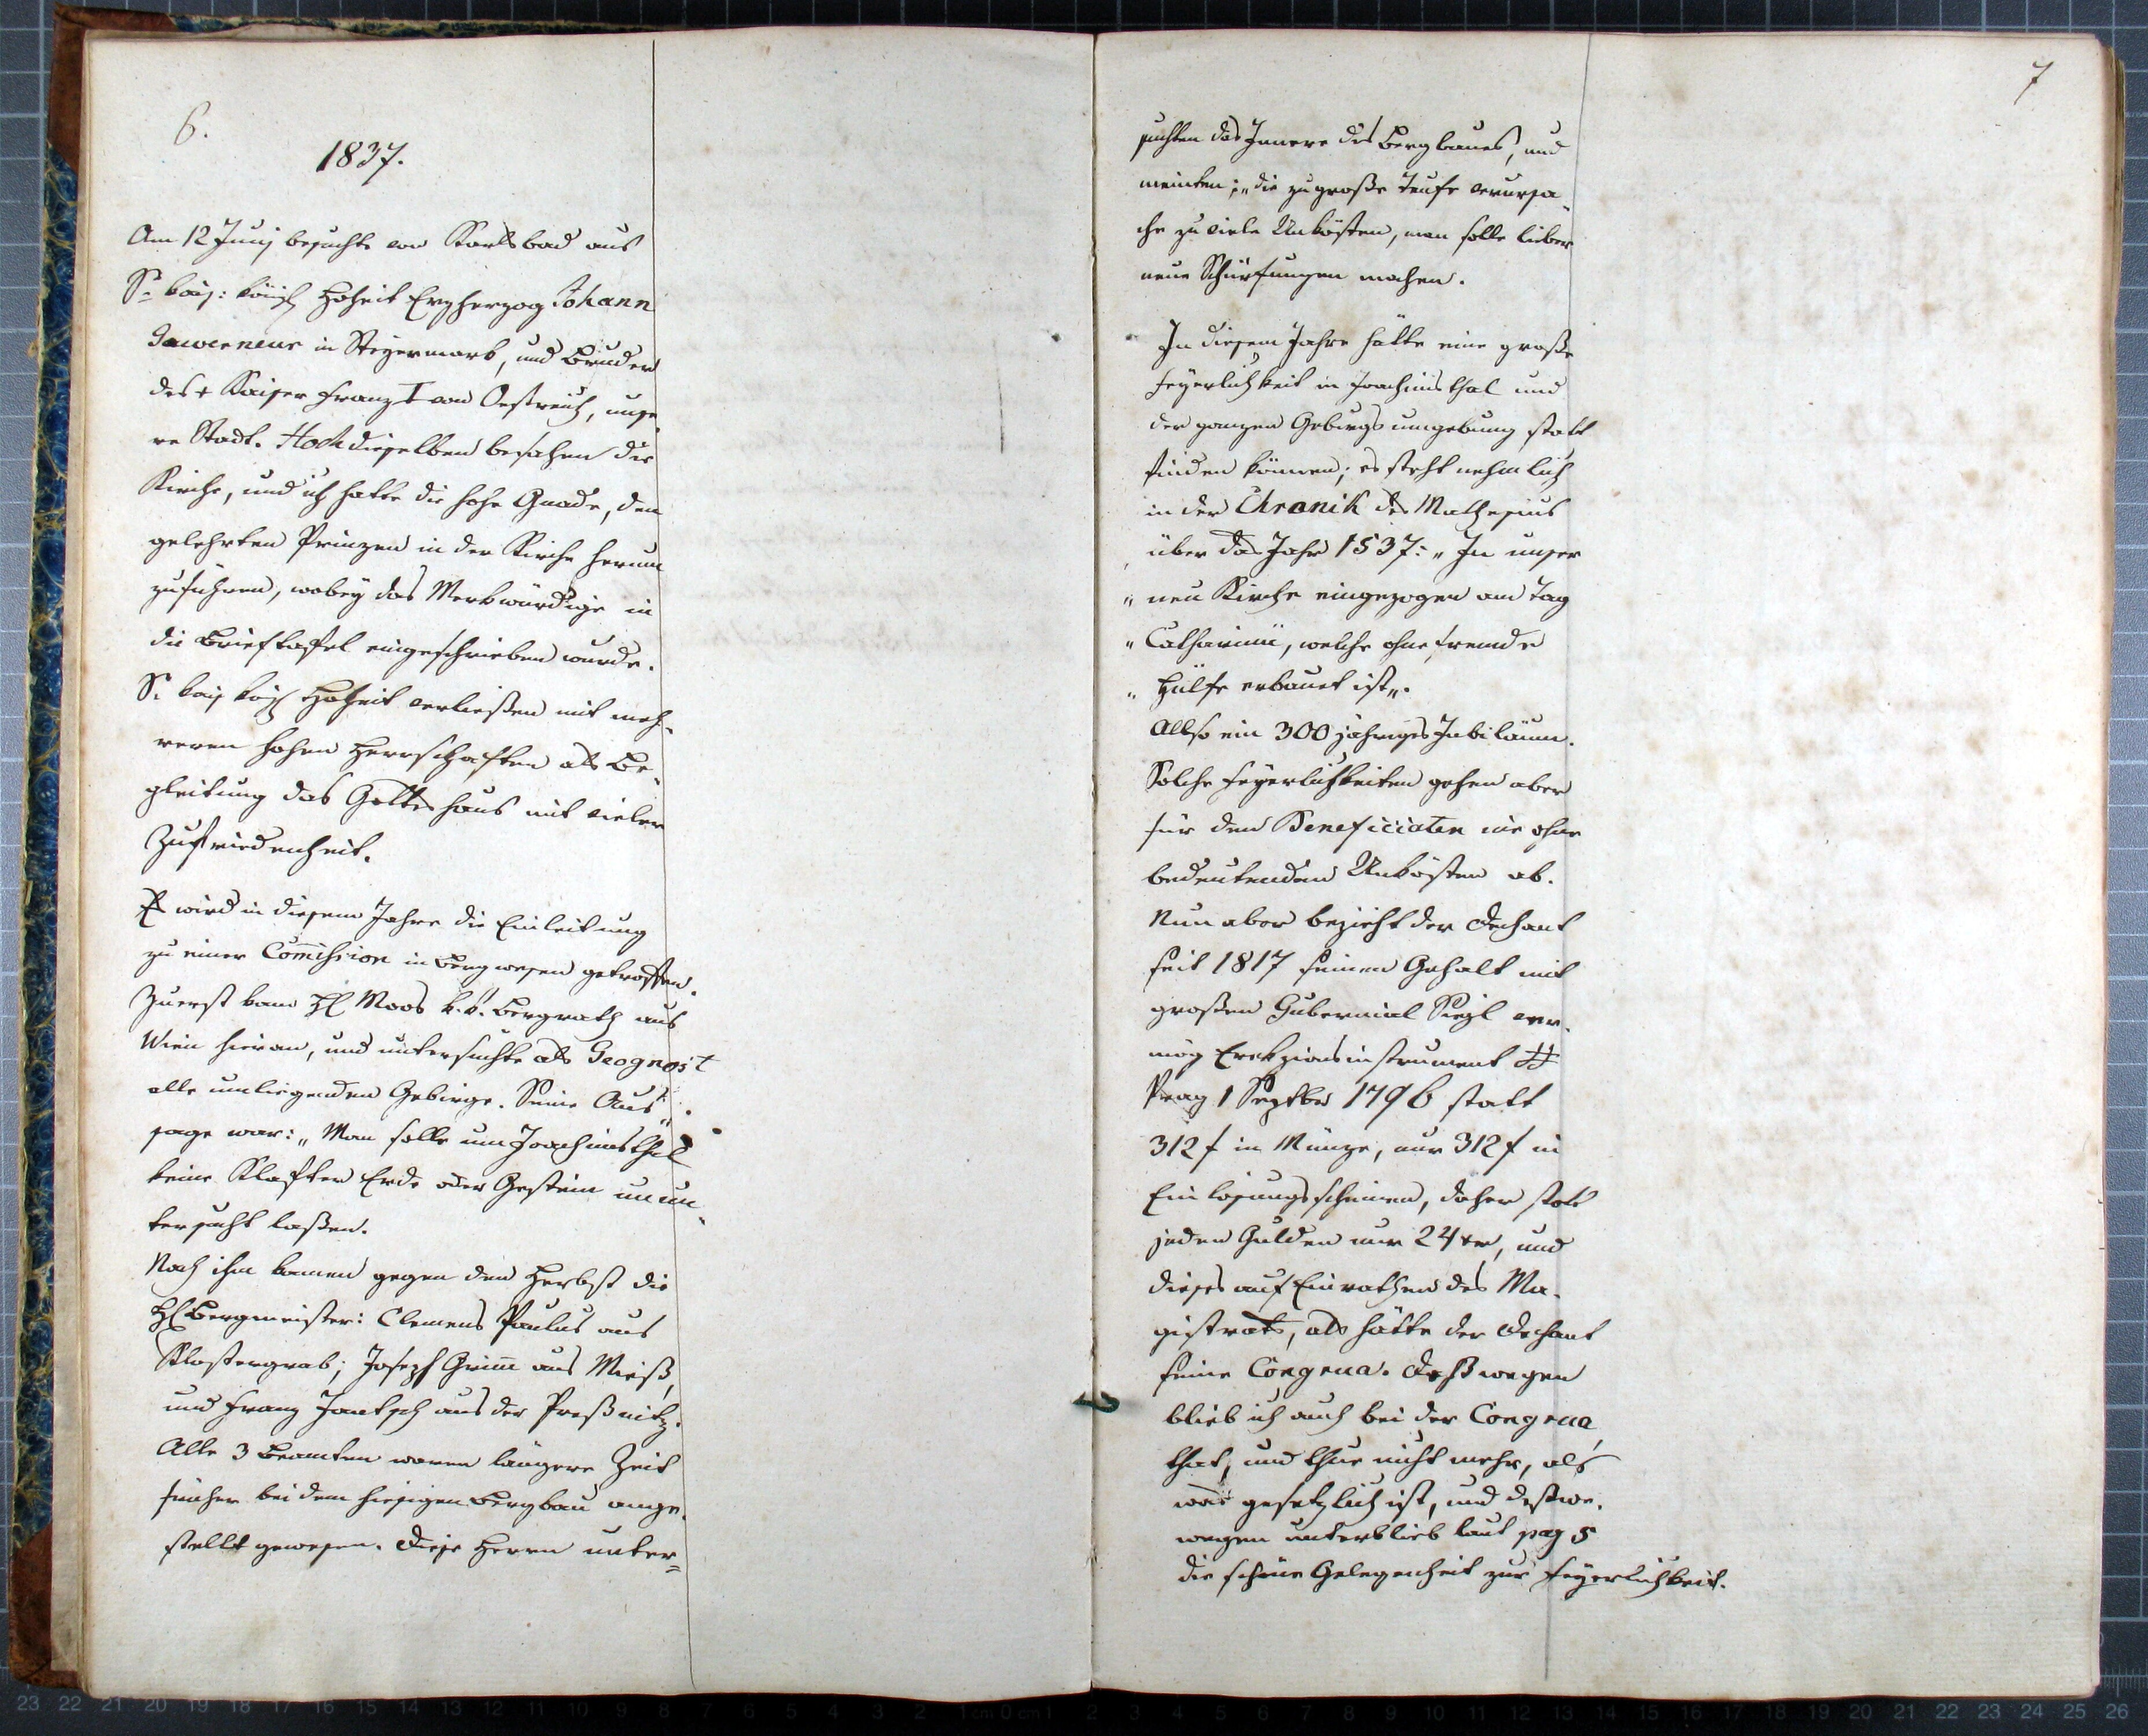 6.
1837.
Am 12 Junij besuchte von Karlsbad aus
Se kais: königl Hoheit Erzherzog Johann
Gouverneur in Steyermark, und Bruder
des + Kaiser Franz I von Oestreich, unse-
re Stadt. Hochdieselben besahen die
Kirche, und ich hatte die hohe Gnade, den
gelehrten Prinzen in der Kirche herum
zuführen, wobey das Merkwürdige in
die Brieftafel eingeschrieben wurde.
Se kais königl Hoheit verließen mit meh-
reren hohen Herrschaften als Be-
gleitung das Gotteshaus mit vieler
Zufriedenheit.
Es wird in diesem Jahre die Einleitung
zu einer Commission in Bergwesen getroffen.
Zuerst kam H Moos k.k. Bergrath aus
Wien hieran, und untersuchte als Geognost
alle umliegenden Gebirge. Seine Aus-
sage war: „Man solle um Joachimsthal
keine Klafter Erde oder Gestein unun-
tersucht laßen.
Nach ihm kamen gegen den Herbst die
H Bergmeister: Clemens Paulus aus
Klostergrab; Joseph Grimm aus Mieß,
und Franz Jantsch aus der Preßnitz.
Alle 3 Beamten waren längere Zeit
früher bei dem hiesigen Bergbau ange-
stellt gewesen. Diese Herrn unter=
7
suchten das Innere des Bergbaues, und
meinten; „die zu große Teufe verursa-
che zu viele Unkösten, man solle lieber
neue Schürfungen machen.
In diesem Jahre hätte eine große
Feyerlichkeit in Joachimsthal und
der ganzen Gebirgsumgebung statt
finden können; es steht nehmlich
in der Chronik des Mathesius
über das Jahr 1537: „In unser
„ neu Kirche eingezogen am Tag
„ Catharinä, welche ohne fremde
„ Hülfe erbauet ist„.
Allso ein 300 jähriges Jubiläum.
Solche Feyerlichkeiten gehen aber
für den Beneficiaten nie ohne
bedeutenden Unkösten ab.
Nun aber bezieht der Dechant
seit 1817 seinen Gehalt mit
großen Gubernial Siegl ver-
mög Erekzionsinstrument
Prag 1 Septber 1796 statt
312 f in Münze, nur 312 f in
Einlösungsscheinen, daher statt
jeden Gulden nur 24 xr, und
dieses auf Einrathen des Ma-
gistrats, als hätte der Dechant
seine Congrua. Deßwegen
blieb ich auch bei der Congrua,
that, und thue nicht mehr, als
was gesetzlich ist, und deßwe-
wegen unterblieb laut pag 5
die schöne Gelegenheit zur Feyerlichkeit.